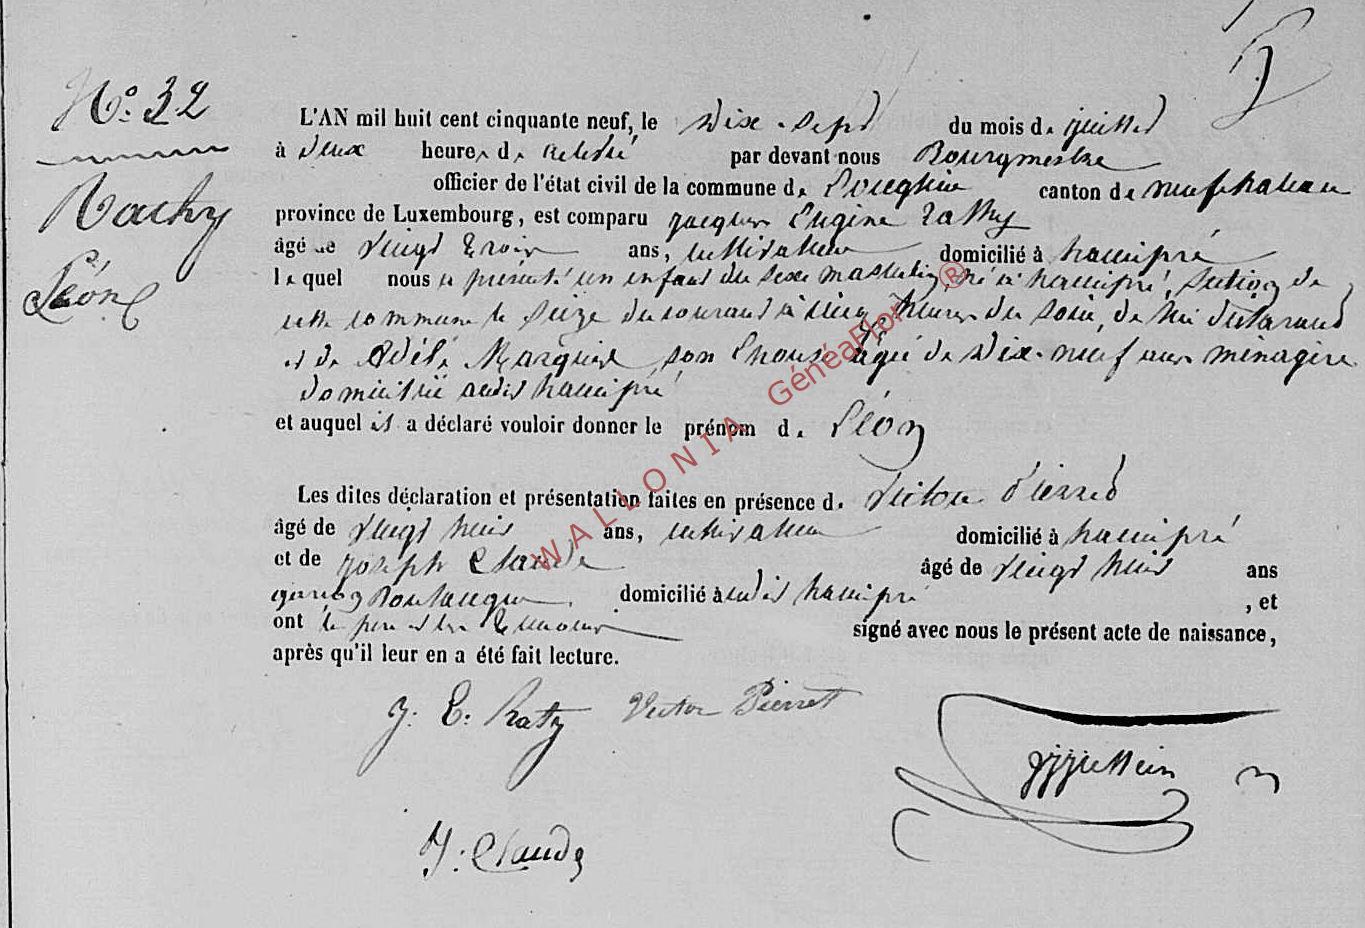 N° 32
Rathy
Léon
L'AN mil huit cent cinquante neuf, le dix-sept du mois de juillet
à deux heures de relevé par devant nous Bourgmestre
officier de l'état civil de la commune de Longlier canton de neufchateau
province de Luxembourg, est comparu jacques Eugène Rathy
âgé de vingt trois ans, cultivateur domicilié à hamipré
lequel nous a présenté un enfant du sexe masculin, né à hamipré, section de
cette commune le seize du courant à cinq heures du soir, de lui déclarant
et de Adélé Marquet son Epouse agée de dix-neuf ans ménagère
domiciliée audit hamipré
et auquel il a déclaré vouloir donner le prénom de Léon
Les dites déclaration et présentation faites en présence de Victor Pierret
âgé de vingt huit ans, cultivateur domicilié à hamipré
et de joseph Claude âgé de vingt huit ans
garçon Boulanger domicilié à audit hamipré , et
ont le père et les témoins signé avec nous le présent acte de naissance,
après qu'il leur en a été fait lecture.
J. E. Raty Victor Pierret
J. Claude
WALLONIA GénéaFlor ®